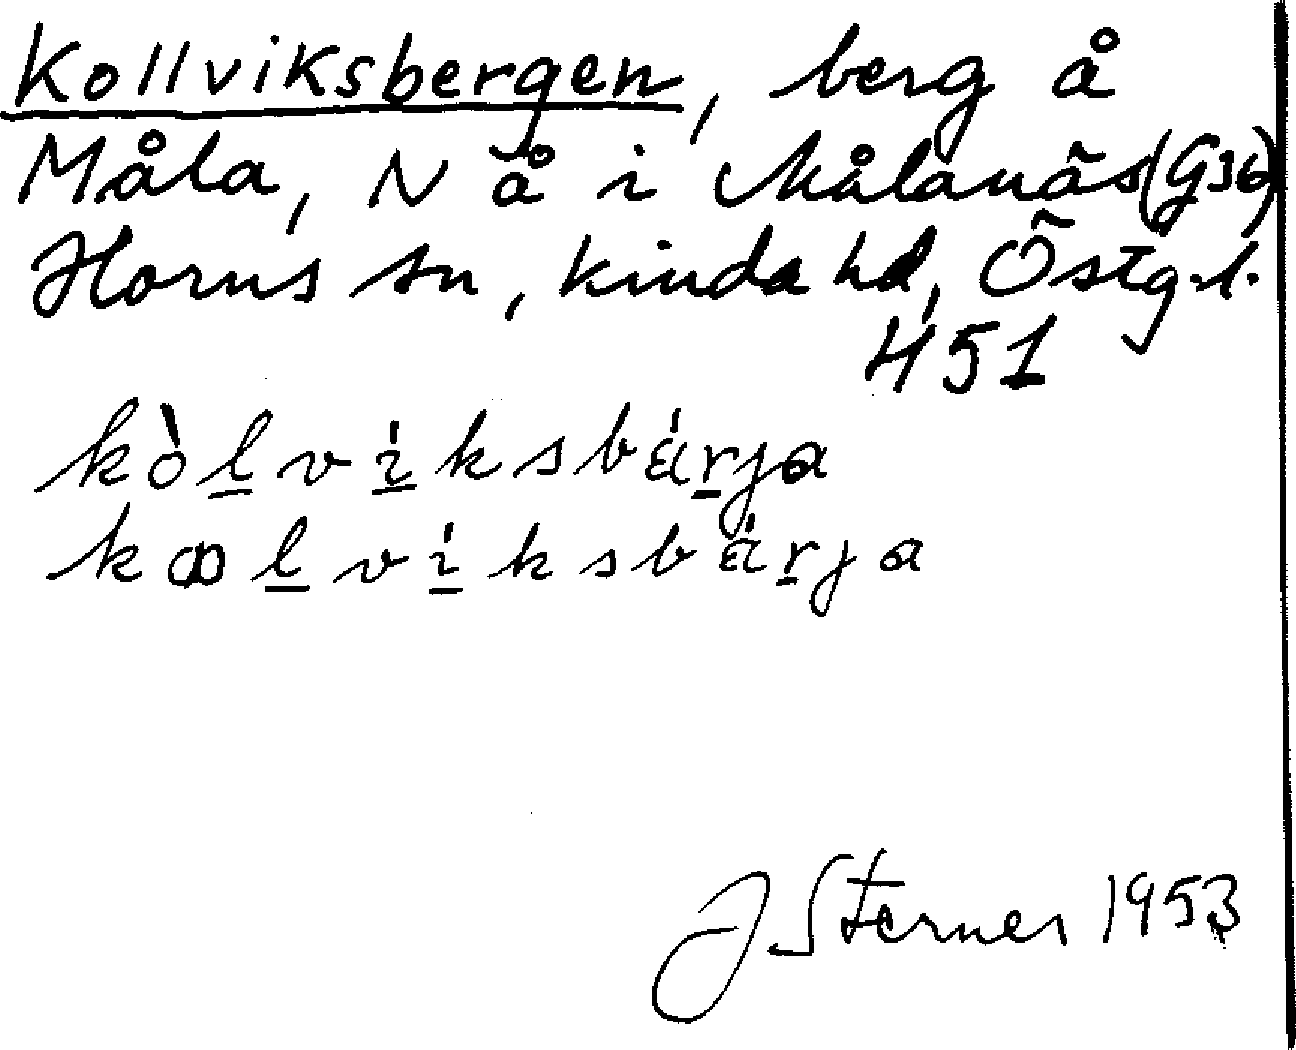 Kollviksbergen, berg å
Måla, N å i Målanäs (G36)
Horns sn, Kinda hd, Östg.l.
451
kòḻvi̱ksbáṟja
kꝏḻvi̱ksbä́ṟja
J Sterner 1953